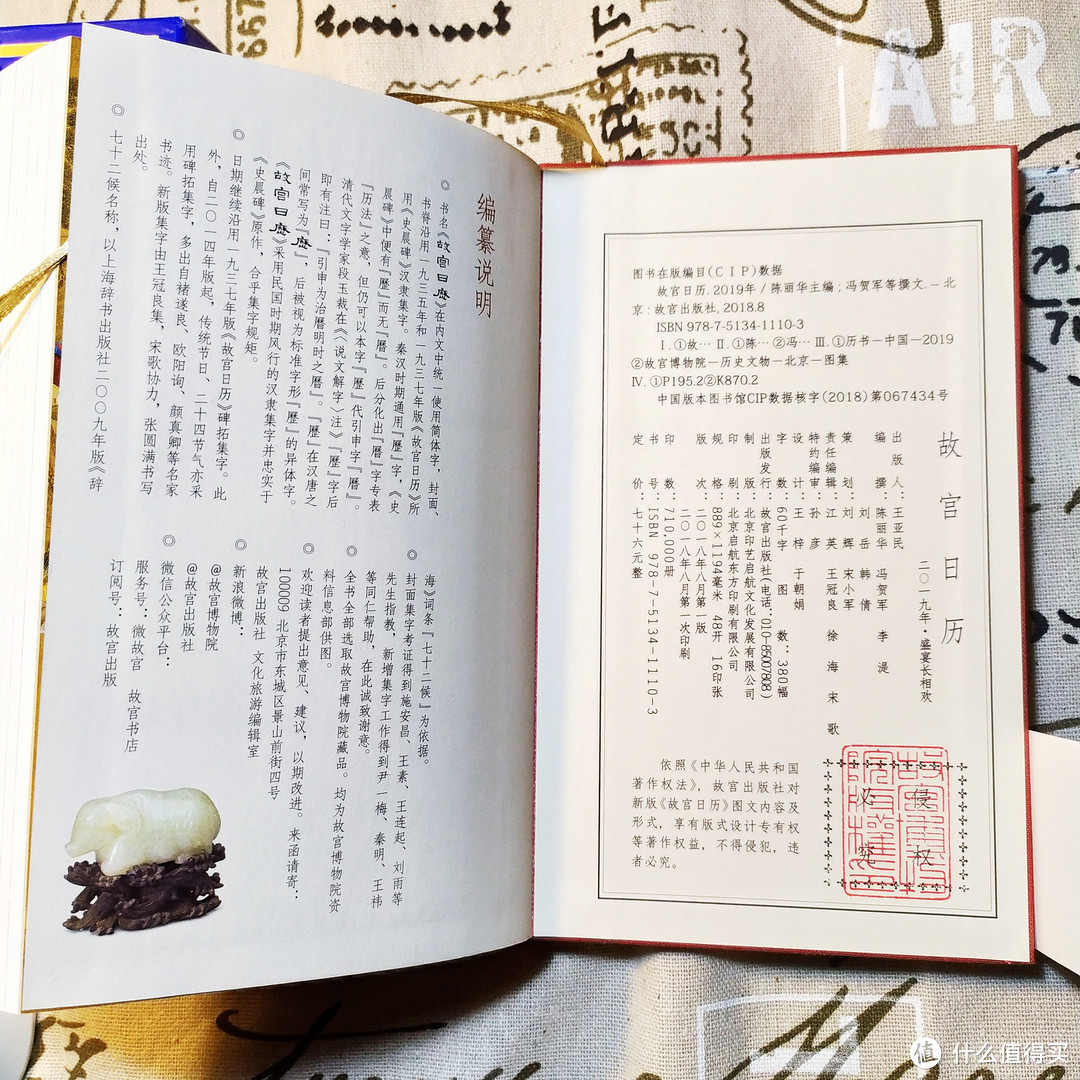 编纂说明
◎ 书名《故宫日歷》在内文中统一使用简体字，封面、
书脊沿用一九三五年和一九三七年版《故宫日历》所
用《史晨碑》汉隶集字。秦汉时期通用『歷』字，《史
晨碑》中便有『歷』而无『曆』。后分化出『曆』字专表
『历法』之意，但仍可以本字『歷』代引申字『曆』。
清代文字学家段玉裁在《〈说文解字〉注》『歷』字后
即有注曰：『引申为治曆明时之曆』。『歷』在汉唐之
间常写为『歴』，后被视为标准字形『歷』的异体字。
《故宫日歷》采用民国时期风行的汉隶集字并忠实于
《史晨碑》原作，合乎集字规矩。
◎ 日期继续沿用一九三七年版《故宫日历》碑拓集字。此
外，自二〇一四年版起，传统节日、二十四节气亦采
用碑拓集字，多出自褚遂良、欧阳询、颜真卿等名家
书迹。新版集字由王冠良集，宋歌协力，张圆满书写
出处。
◎ 七十二候名称，以上海辞书出版社二〇〇九年版《辞
海》词条『七十二候』为依据。
◎ 封面集字考证得到施安昌、王素、王连起、刘雨等
先生指教，新增集字工作得到尹一梅、秦明、王祎
等同仁帮助，在此诚致谢意。
◎ 全书全部选取故宫博物院藏品。均为故宫博物院资
料信息部供图。
◎ 欢迎读者提出意见、建议，以期改进。来函请寄：
100009 北京市东城区景山前街四号
故宫出版社 文化旅游编辑室
◎ 新浪微博：
@故宫博物院
@故宫出版社
◎ 微信公众平台：
服务号：微故宫 故宫书店
订阅号：故宫出版
图书在版编目(CIP)数据
故宫日历. 2019年 / 陈丽华主编；冯贺军等撰文. — 北
京：故宫出版社, 2018.8
ISBN 978-7-5134-1110-3
Ⅰ.①故… Ⅱ.①陈…②冯… Ⅲ.①历书－中国－2019
②故宫博物院－历史文物－北京－图集
Ⅳ.①P195.2②K870.2
中国版本图书馆CIP数据核字(2018)第067434号
故宫日历
二〇一九年·盛宴长相欢
出版人：王亚民
编撰：陈丽华 冯贺军 李 湜
刘 岳 韩 倩
策划：刘 辉 宋小军
责任编辑：江 英 王冠良 徐 海 宋 歌
特约编审：孙 彦
设计：王 梓 于朝娟
字数：60千字 图数：380幅
出版发行：故宫出版社(电话：010-85007808)
制版：北京印艺启航文化发展有限公司
印刷：北京启航东方印刷有限公司
规格：889×1194毫米 48开 16印张
版次：二〇一八年八月第一版
二〇一八年八月第一次印刷
印数：710,000册
书号：ISBN 978-7-5134-1110-3
定价：七十六元整
侵权
必究
依照《中华人民共和国
著作权法》，故宫出版社对
新版《故宫日历》图文内容及
形式，享有版式设计专有权
等著作权益，不得侵犯，违
者必究。
AIR
值 什么值得买